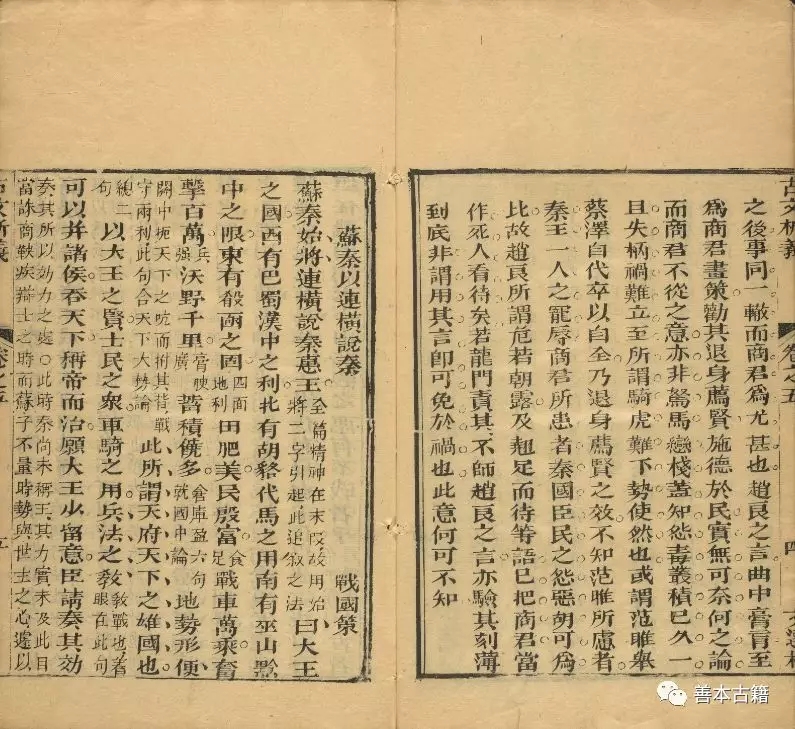 古文析義 卷之五 四
之後事同一轍而商君為尤甚也趙良之言曲中膏肓至
為商君畫策勸其退身薦賢施德於民實無可奈何之論
而商君不從之意亦非駑馬戀棧蓋知怨毒叢積已久一
且失柄禍難立至所謂騎虎難下勢使然也或謂范睢舉
蔡澤自代卒以自全乃退身薦賢之效不知范睢所慮者
秦王一人之寵辱商君所患者秦國臣民之怨惡胡可為
比故趙良所謂危若朝露及翹足而待等語已把商君當
作死人看待矣若龍門責其不師趙良之言亦驗其刻薄
到底非謂用其言卽可免於禍也此意何可不知
蘇秦以連橫說秦 戰國策
蘇秦始將連橫說秦惠王全篇精神在末段故用始將二字引起此追敘之法曰大王
之國西有巴蜀漢中之利北有胡貉代馬之用南有巫山黔
中之限東有殽函之固四面地利田肥美民殷富食足戰車萬乘奮
擊百萬兵强沃野千里膏腴廣蓄積饒多倉庫盈六句就國中論地勢形便
關中扼天下之吭而拊其背戰守兩利此句合天下大勢論此所謂天府天下之雄國也
總二句以大王之賢士民之衆車騎之用兵法之教教戰也著眼在此句
可以并諸侯吞天下稱帝而治願大王少留意臣請奏其效
奏其所以効力之處○此時秦尚未稱王其力實未及此目
當誅商鞅疾辯士之時而蘇子不量時勢與世主之心遽以
古文析義 卷之五 五
善本古籍